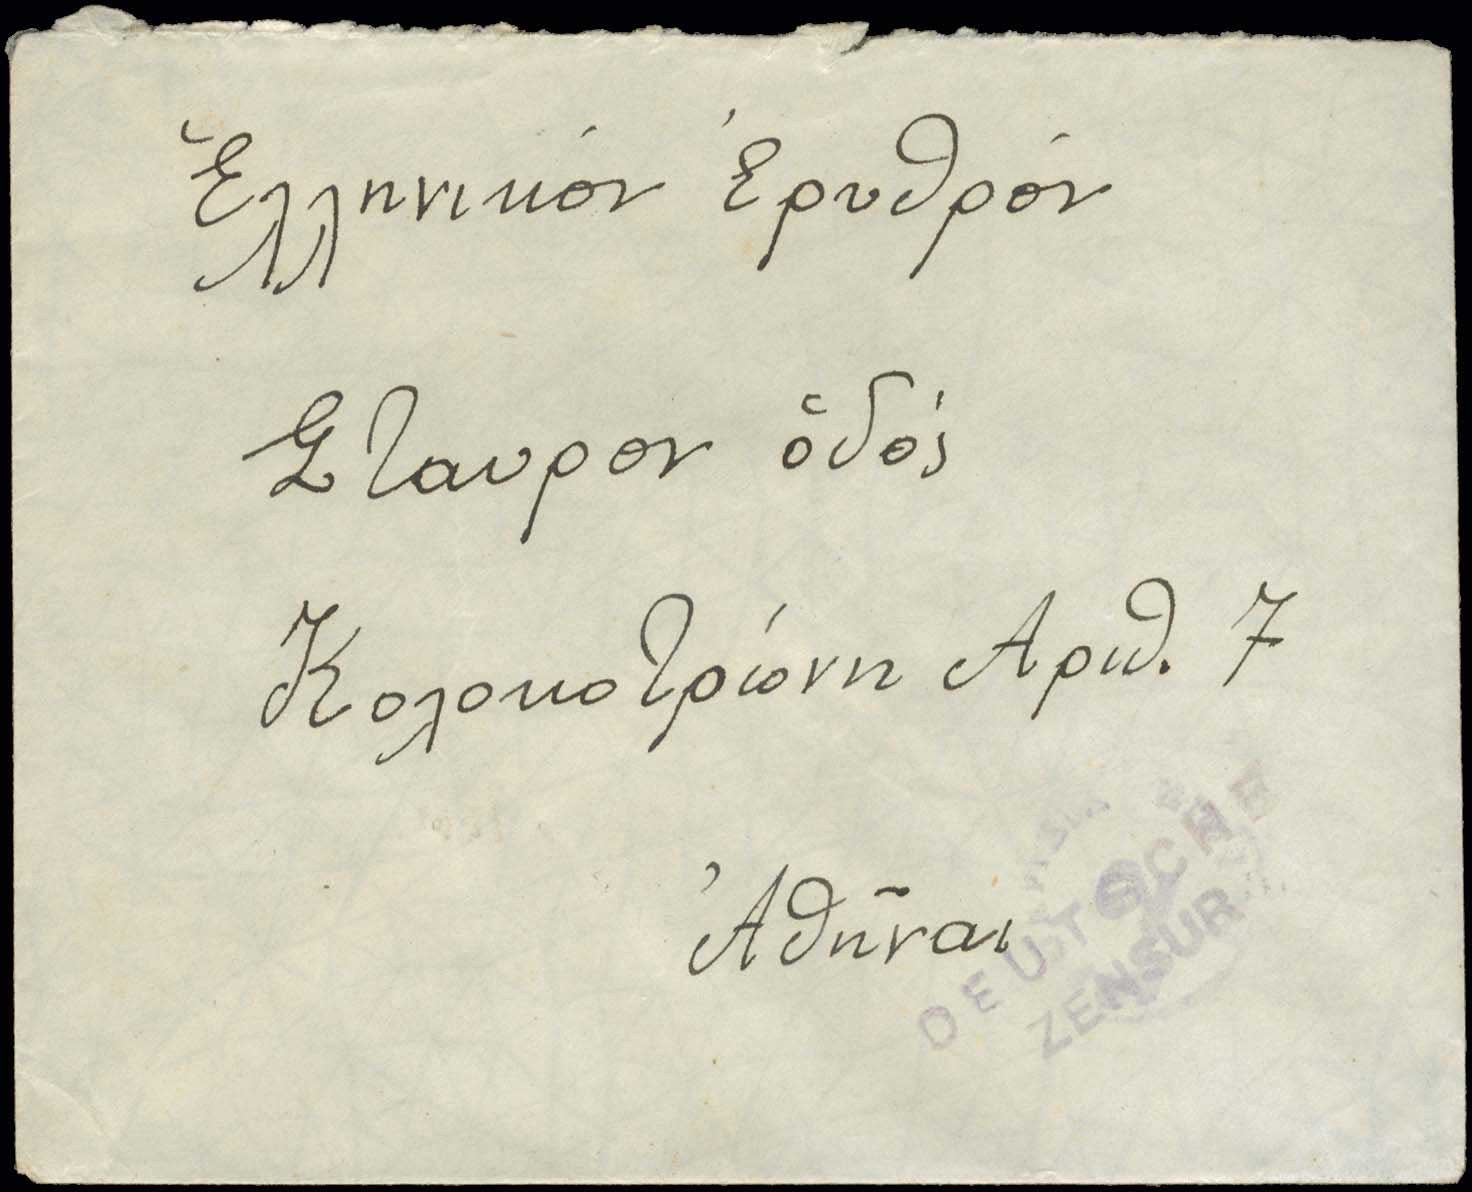 Ἑλληνικόν Ἐρυθρόν
Σταυρον ὁδός
Κολοκοτρώνη Αριθ. 7
Ἀθῆναι
DEUTSCHE
ZENSUR